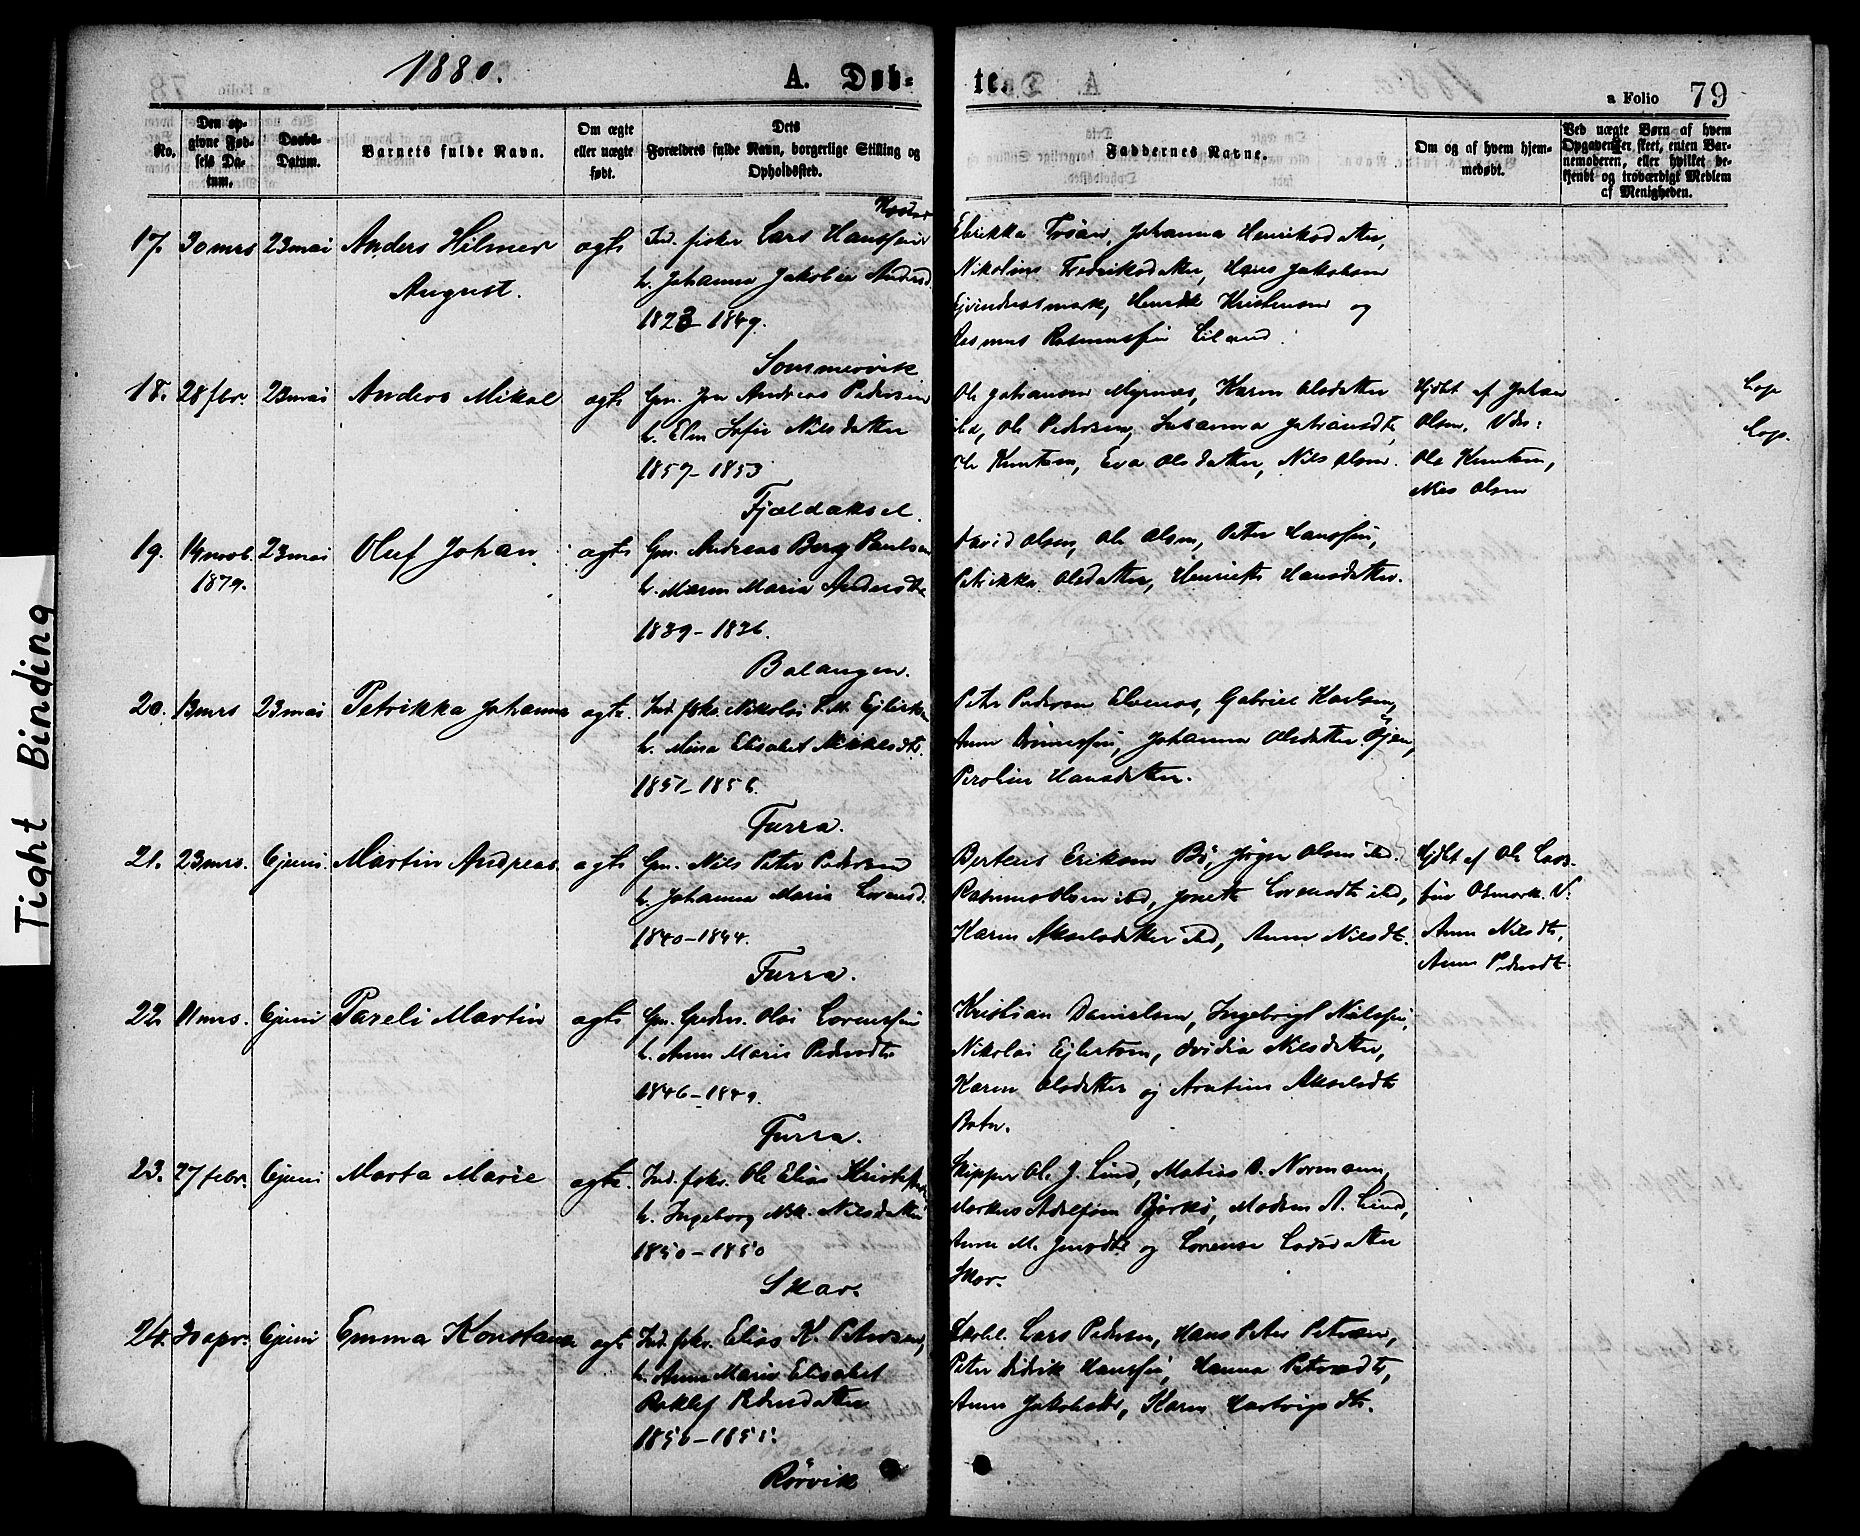 1880.
A. Døb-
te.
a Folio 79
No.
Den op-
givne Fød-
sels Da-
tum.
Daabs-
Datum.
Barnets fulde Navn.
Om ægte
eller uægte
født.
Dets
Forældres fulde Navn, borgerlige Stilling og
Opholdssted.
Faddernes Navne.
Om og af hvem hjem-
medøbt.
Ved uægte Børn af hvem
Opgaven er skeet, enten Bar-
nemoderen, eller hvilket be-
kjendt og troværdigt Medlem
af Menigheden.
17. 30 mrs 23 mai Anders Hilmer
August.
ægte Ind. fisker Lars Hanssen
h. Johanna Jakobea Andersd.
1823 - 1849.
Johanna Henriksdatter,
Nikoline Fredriksdatter, Hans Jakobsen
Henrik Kristensen og
Rasmus Rasmussen Liland.
Sommervik
18. 28 fbr. 23 mai Anders Mikal ægte Gm. Jon Andreas Pedersen
h. Elen Sofie Nilsdatter
1857 - 1853
Ole Johansen Myrnes, Karen Olsdatter
ibd, Ole Pedersen, Susanna Johansdt,
Ole Knutsen, Eva Olsdatter, Nils Olsen.
Hjdbt af Johan
Olsen. Vdn:
Ole Knutsen,
Nils Olsen
Cop
Cop.
Fjældaksel.
19. 14 novb.
1879.
23 mai Oluf Johan ægte Gm. Andreas Berg Paulsen
h. Maren Maria Andersdt
1839 - 1836.
David Olsen, Ole Olsen, Peter Hanssen,
Petrikka Olsdatter, Henriette Hansdatter.
Balangen.
20. 13 mrs 23 mai Petrikka Johanna ægte. Ind. fskr. Nikolai Ejlertsen
h. Mina Elisabet Mikalsdt.
1851 - 1856.
Peter Pedersen Elvenes, Gabriel Karlsen,
Johanna Olsdatter
Peroline Hansdatter.
Furra.
21. 23 mrs. 6 juni. Martin Andreas ægte Gm. Nils Peter Pedersen
h. Johanna Maria Lorensd.
1840 - 1844.
Berteus Eriksen Bø, Jørgen Olsen ibd.
Rasmus Olsen ibd, Jonette Lorensdt ibd,
Karen Akselsdatter ibd, Anne Nilsdt.
Hjdbt af Ole Lars-
sen Osmark. V.
Anne Nilsdt,
Anne Pedersdt
Furra.
22. 11 mrs. 6 juni Pareli Martin ægte Gm. Olai Lorenssen
h. Anne Marie Pedersdt.
1846 - 1849.
Kristian Danielsen, Ingebrigt Nilssen,
Nikolai Ejlertsen, Ovidia Nilsdatter,
Karen Olsdatter og Akselsdt
Botn.
Furra.
23. 27 febr. 6 juni Marta Marie ægte. Ind. fskr. Ole Elias
h. Ingeborg Nilsdatter
1850 - 1850
Skipper Ole J. Lind, Matias B. Normann,
Markus Adolfsen Bjørkø, Madam A. Lind,
Anne M. Jensdt og Lorense Ladsdatter
Skar.
Skar.
24. 30 apr. 6 juni Emma Konstana ægt Ind. fskr. Elias K. Petersen,
h. Anne Marie Elisabet
Roklef Pedersdatter
1856 - 1851.
Lars Pedersen, Hans Peter Petersen,
Peter Didrik Hanssen, Hanna Petersdt,
Anne Jakobsdt, Karen Hartvigsdt.
Rørvik
Tight Binding